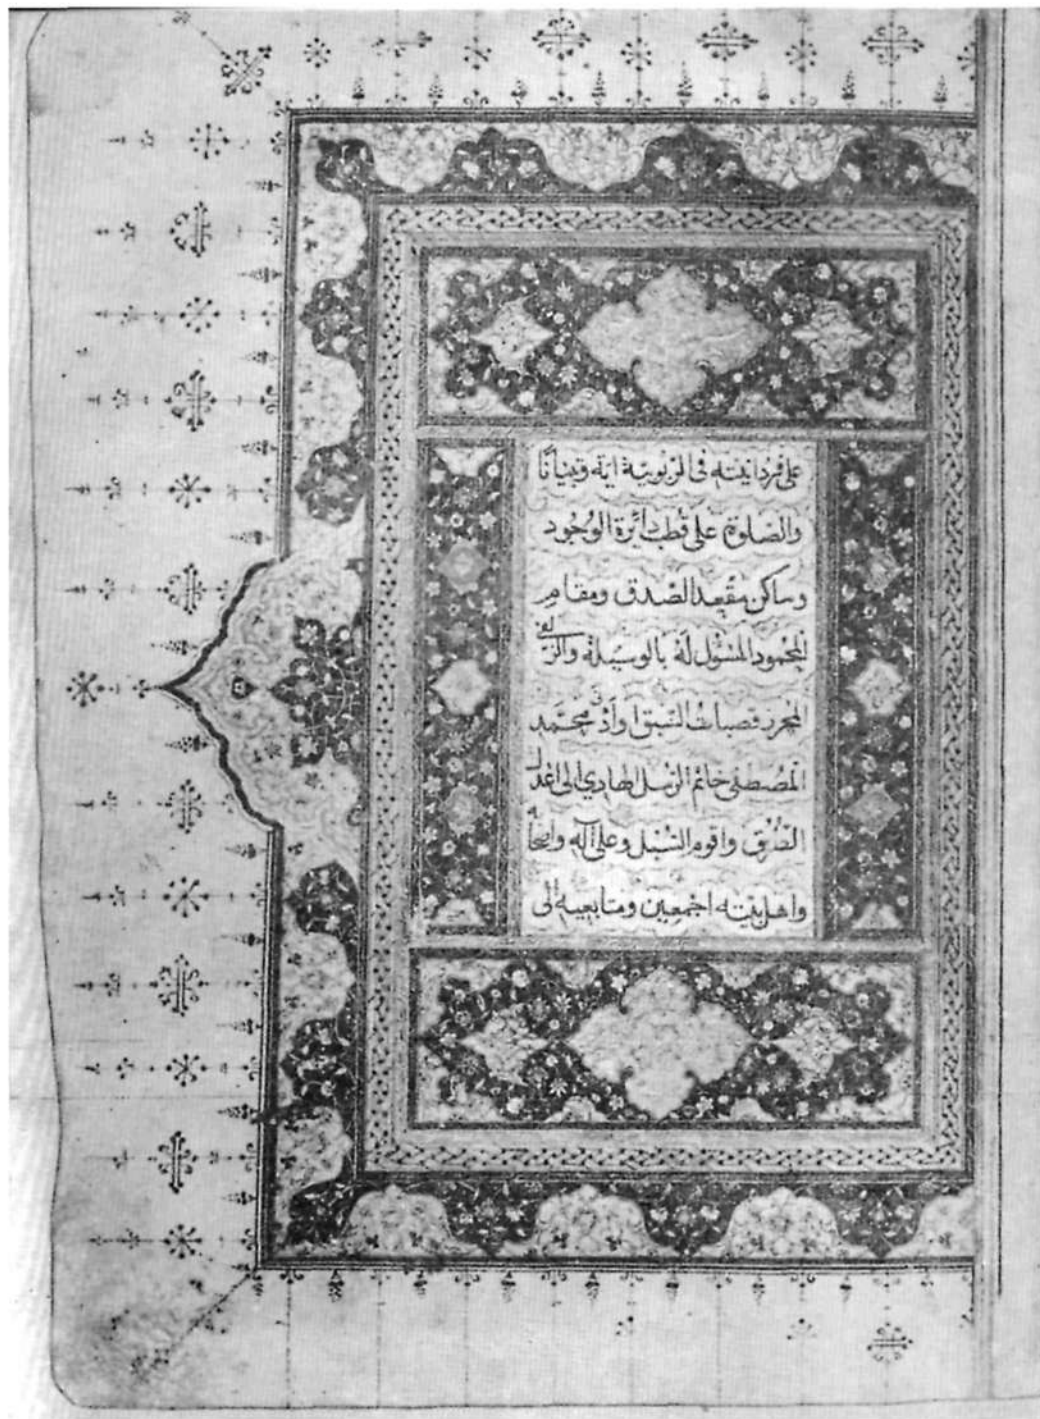 على فردانيته فى الربوبية اية وتبيانًا
والصلوة على قطب دائرة الوجود
وساكن مقعد الصدق ومقام
المحمود المسئول له بالوسيلة والزلفى
المحرز قصبات السبق او ادنى محمد
المصطفى خاتم الرسل الهادي الى اعدل
الطرق واقوم السبل وعلى آله واصحابه
واهل بيته اجمعين ومتابعيه الى